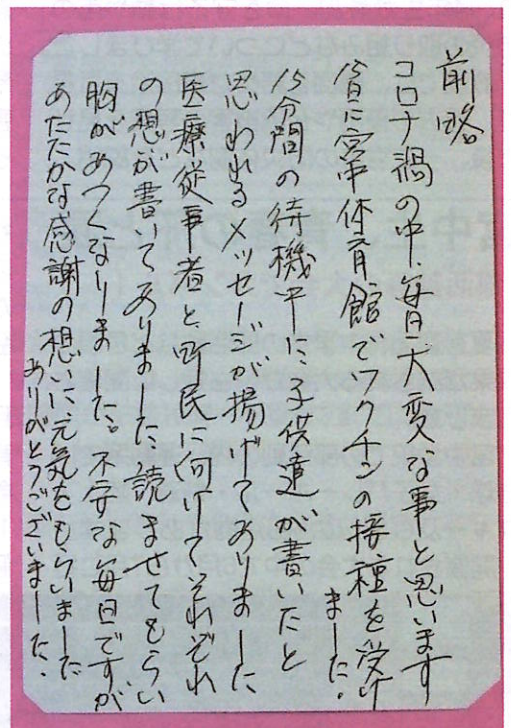 前略
コロナ禍の中、毎日大変な事と思います
15日に宮中体育館でワクチンの接種を受け
ました。
15分間の待機中に、子供達が書いたと
思われるメッセージが掲げてありました
医療従事者と、町民に向けてそれぞれ
の想いが書いてありました、読ませてもらい
胸があつくなりました。不安な毎日ですが
あたたかな感謝の想いに、元気をもらいました
ありがとうございました。